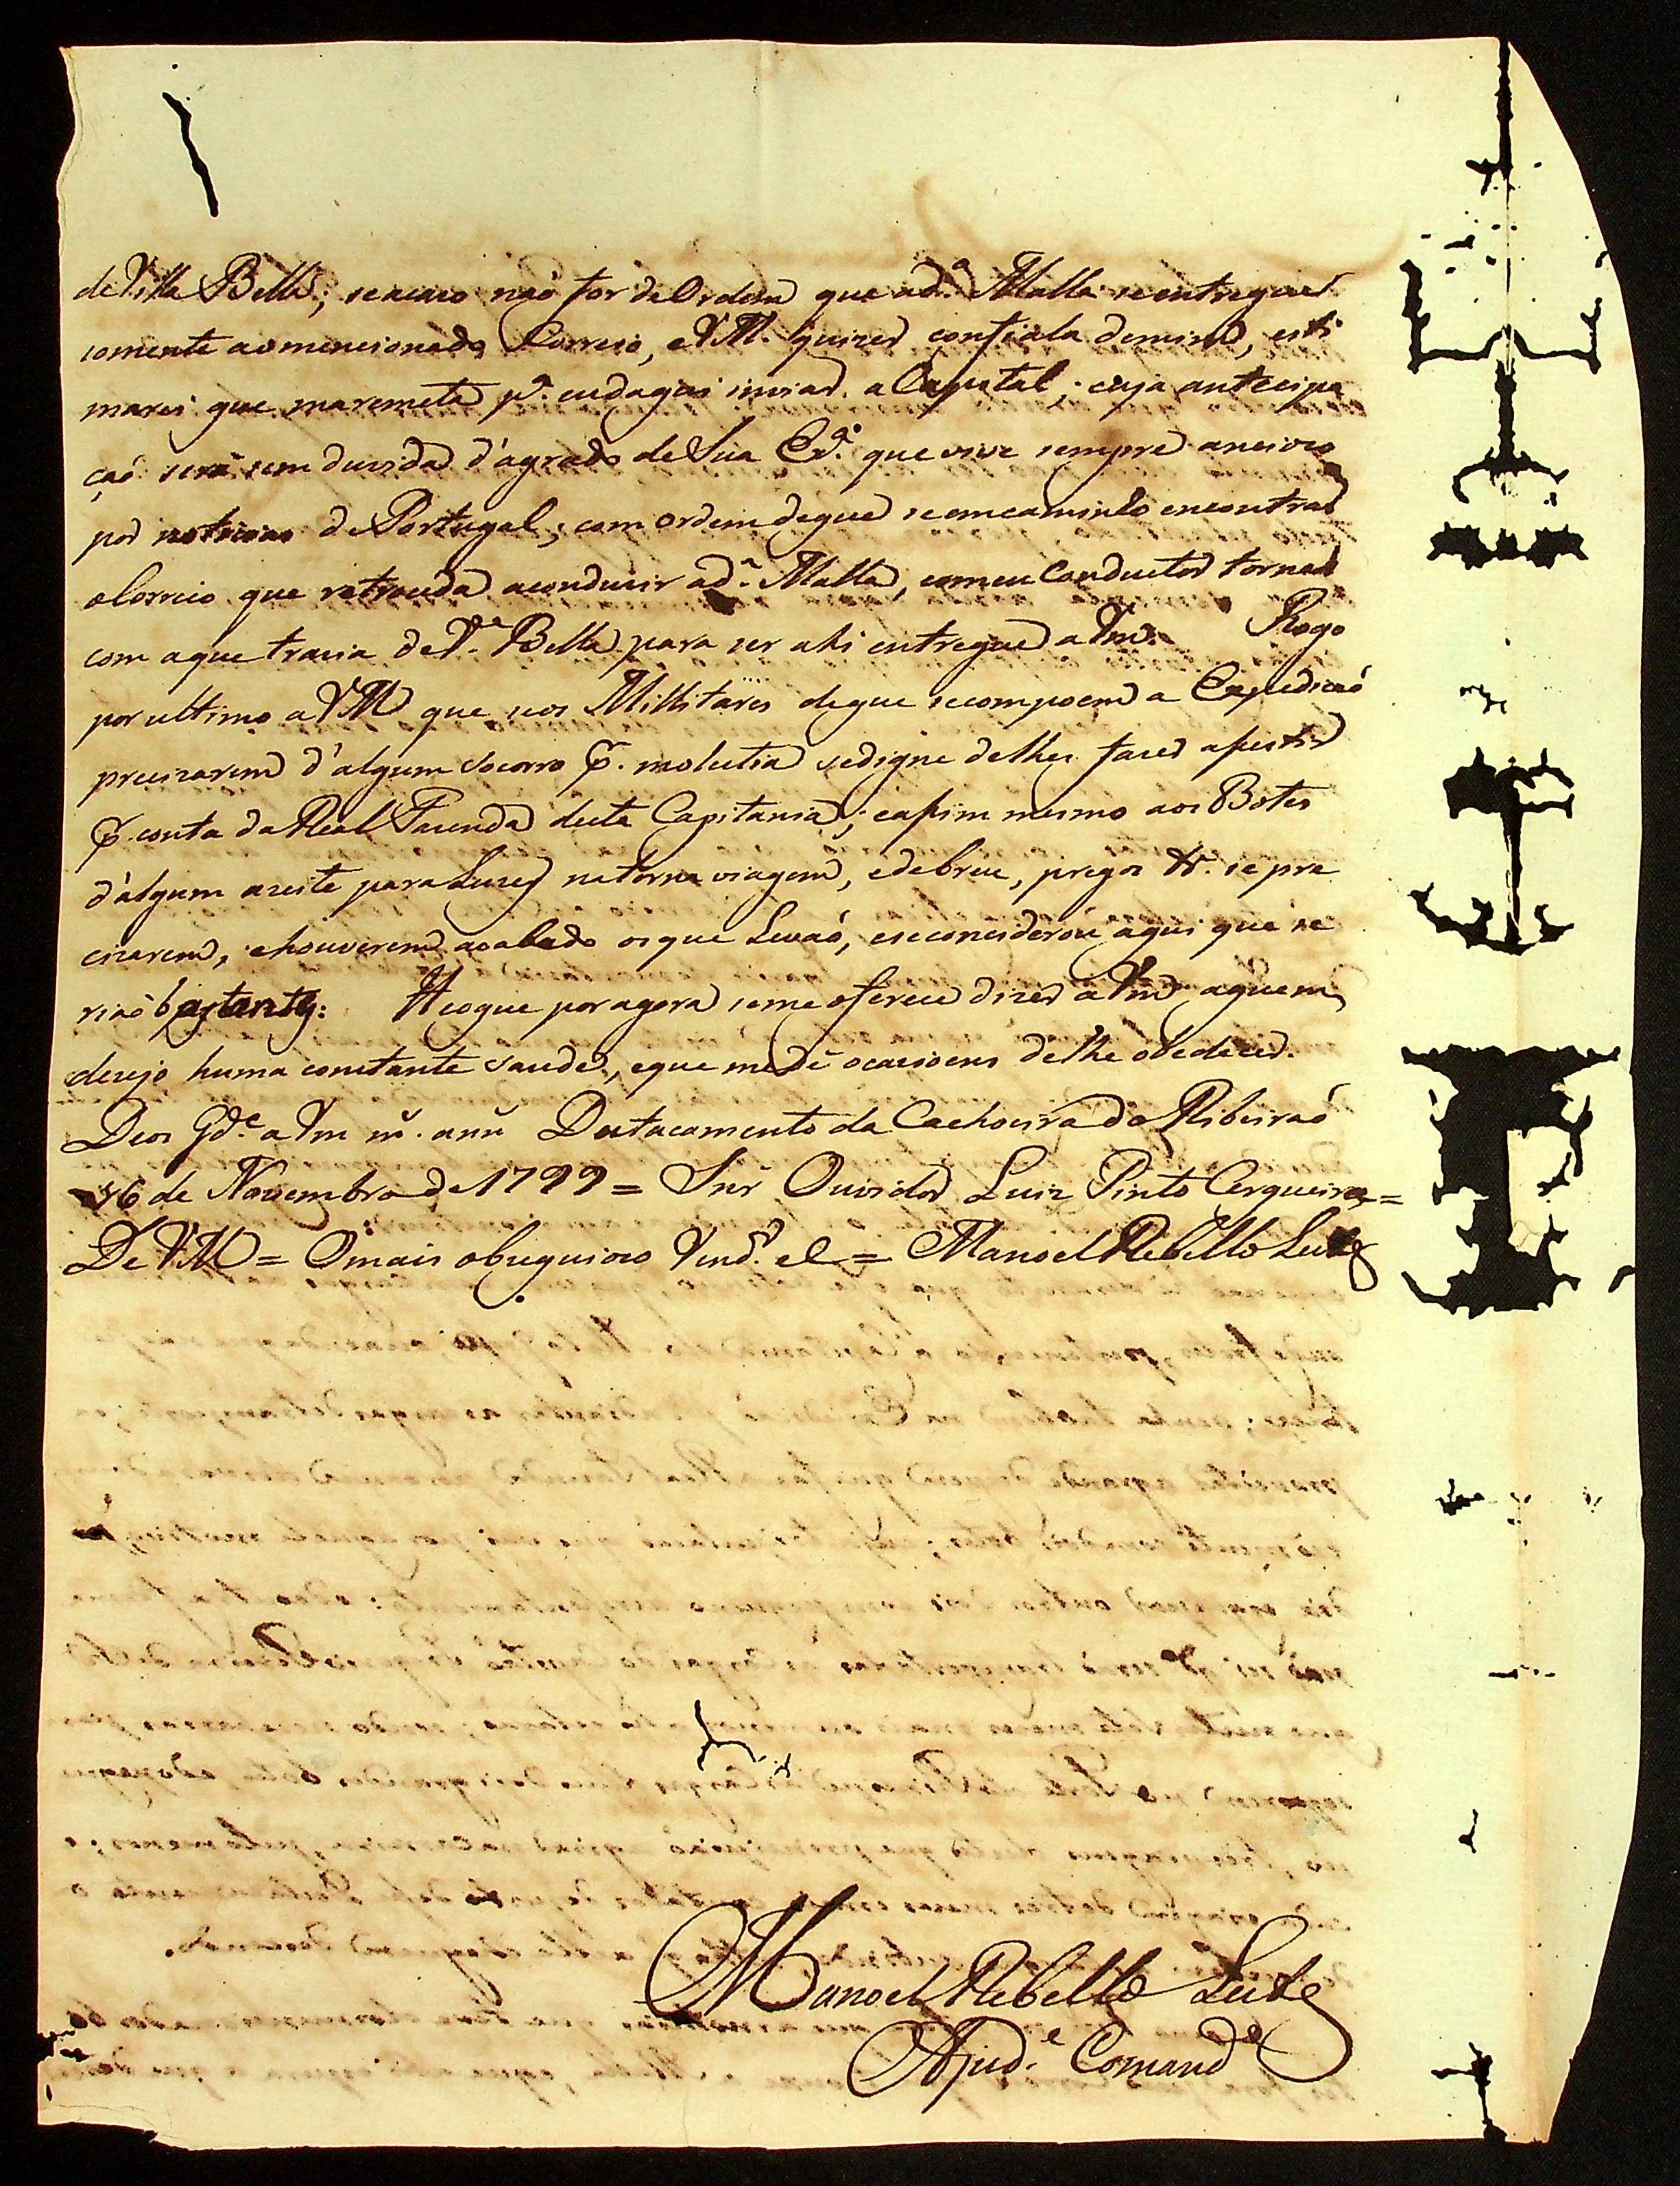 de Villa Bella; se acaso não for de Ordem que a d.ª Malla se entregue
somente ao mencionado Correio, e VM. quizer confiala de mim, esti
marei que ma remeta p.ª eu daqui inviar a Capital; cuja antecipa
çaõ será sem duvida d'agrado de Sua Ex.ª que vive sempre ancioso
por noticias de Portugal; com ordem de que se em caminho encontrar
o Correio que retroceda a conduzir a d.ª Malla, e o meu Conductor torna
com a que trazia de V.ª Bella para ser ahi entregue a Vm. Rogo
por ultimo a VM que se os Millitares de que se compoem a Expediçaõ
precizarem d'algum socorro p. molestia se digne de lhes fazer assistir
p. conta da Real Fazenda desta Capitania; e assim mesmo aos Botes
d'algum azeite para Luzes na torna viagem, e de breu, pregos &.ª se pre
cizarem, e houverem acabado os que Levaõ, e se considerou aqui que se
riaõ bastantes: He o que por agora se me oferece dizer a Vm a quem
dezejo huma constante saude, e que me dê ocazioens de lhe obedecer.
Deos G.de a Vm m.s ann.s Destacamento da Cachoeira do Ribeiraõ
16 de Novembro de 1799 = Snr Ouvidor Luiz Pinto Cerqueira =
De VM = O mais obzequiozo Ven.or = Manoel Rebello Leite
Manoel Rebello Leite
Ajud.e Comand.e